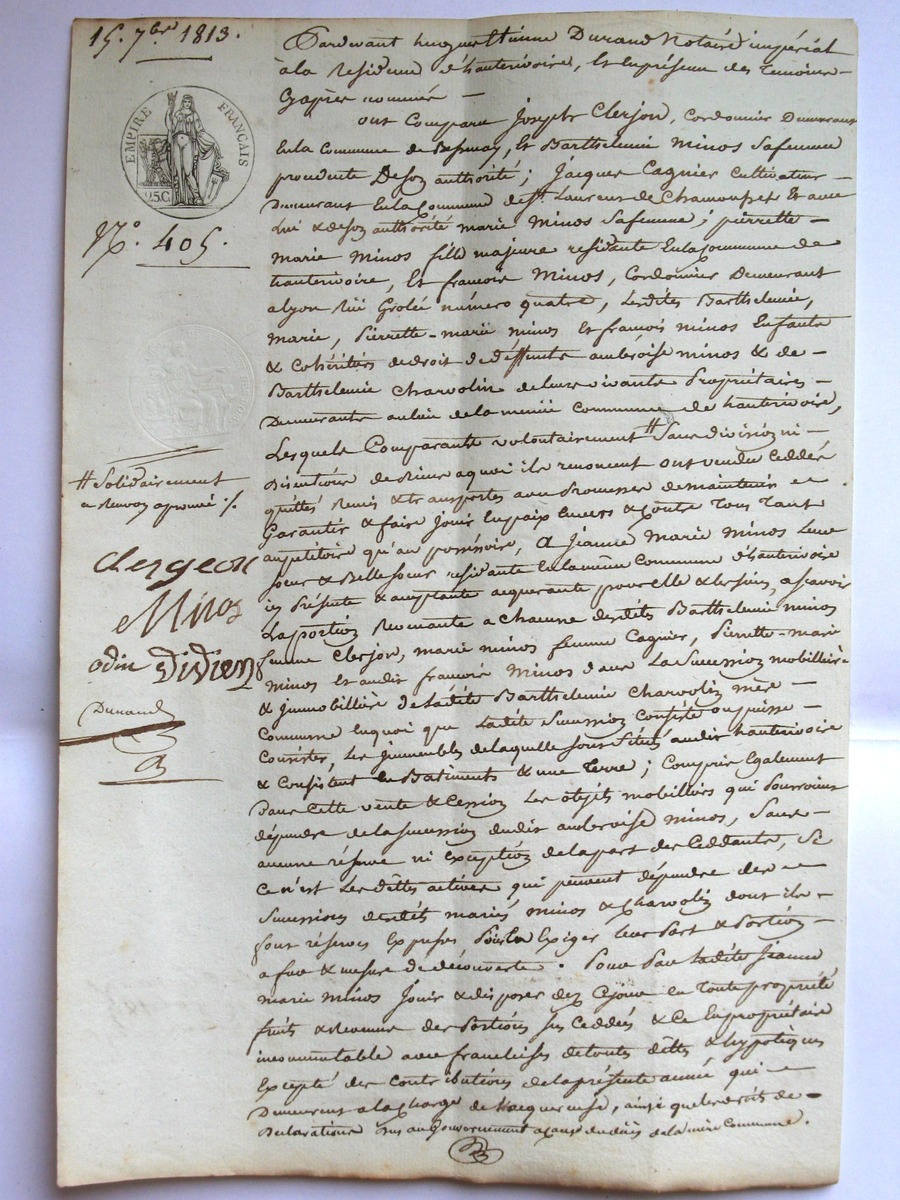 15. 7bre 1813.
EMPIRE FRANÇAIS
25.C.
N.° 405.
Pardevant hugues Etienne Durand Notaire impérial
à la Residence d'hauterivoire, Et En présence des Temoins
Cy après nommés
ont Comparu Joseph Clerjon, Cordonnier Demeurant
En la Commune de Bessenay, Et Barthelemie Minos Sa femme
procedente De son authorité; Jacques Cagnier cultivateur
Demeurant En la Commune de St. Laurent de Chamousset Et avec
Lui & de son authorité marie Minos Sa femme; pierrette
marie Minos fille majeure residante En la Commune de
hauterivoire, Et francois Minos, Cordonnier Demeurant
a Lyon Rüe Grolée numéro quatre, Lesdites Barthelemie,
Marie, Pierrette-marie minos Et francois minos Enfants
& Cohéritiers de droit de deffunts ambroise minos & de
Barthelemie Charvolin de leur vivants Propriétaires
Demeurants au lieu de la meme Commune de hauterivoire,
Lesquels Comparants volontairement # Sans division ni
Discution de biens a quoi ils renoncent ont vendu Ceddés
quittés Remis & transportés avec Promesse de maintenir
Garantir & faire Jouir En paix Envers & Contre Tous Tant
au pétitoire qu'au possessoire, A Jeanne Marie Minos Leur
soeur & Belle soeur residante En la même Commune d'hauterivoire
ici Présente & acceptante acquerante pour elle & les siens, a scavoir
La portion Revenante a Chacune desdits Barthelemie minos
femme Clerjon, marie minos femme Cagnier, Pierrette-marie
Minos Et audit francois Minos dans La Succession mobilliére
& immobillière de Ladite Barthelemie Charvolin mère
Commune En quoi que Ladite Succession Consiste ou puisse
Consister, Les jmmeubles de laquelle sont Situés audit hauterivoire
& Consistent En Batiments & une Terre; Compris Egalement
Dans Cette vente & Cession Les objets mobilliers qui Pourroient
dépendre de la succession dudit ambroise Minos, Sans
aucune réserve ni Exception de la part des Ceddants, Si
Ce n'est Les dettes actives qui peuvent dépendre des
Successions desdits mariés minos & Charvolin dont ils
font réserves Expresses Pour En Exiger leur Part & Portion
a fur & mesure de découverte. Pour Par Ladite Jeanne
marie Minos Jouir & disposer dez Ce jour En Toute propriété
fruits & Revenus des Portions sus Ceddées & Ce En propriétaire
incommutable avec franchises de toutes dettes & hypotèques
Excepté des Contributions de la présente année qui
Demeurent a la Charge de l'acquereuse, ainsi que les droits de
Déclarations dus au Gouvernement a cause du décès de la mère Commune.
# Solidairement
a Renvoy approuvé ./.
Clergeon
Minos
odin Didiong
Durand